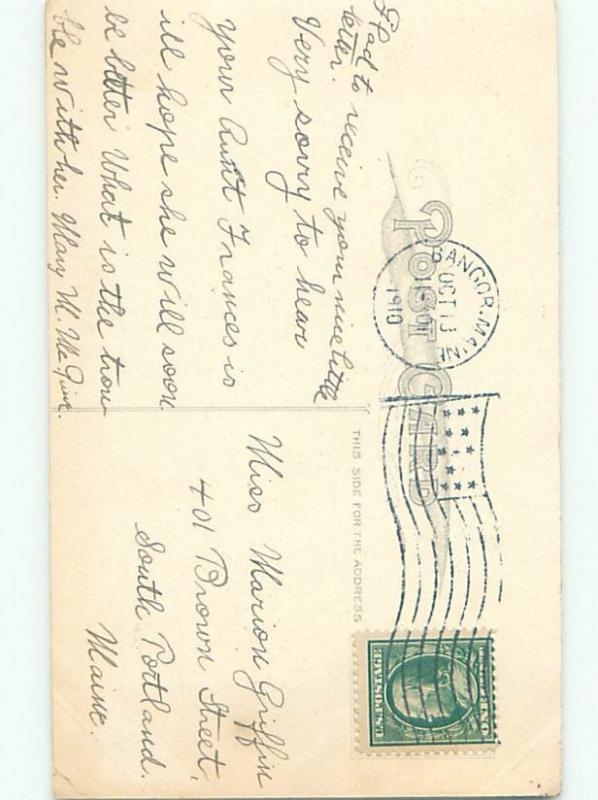 Glad to receive your nice little
letter.
Very sorry to hear
your Aunt Frances is
ill hope she will soon
be better What is the trou
ble with her. Mary M. McGuire.
POST CARD
BANGOR. MAINE
OCT 13
1910
THIS SIDE FOR THE ADDRESS
Miss Marion Griffin
401 Brown Street,
South Portland.
Maine.
U.S. POSTAGE